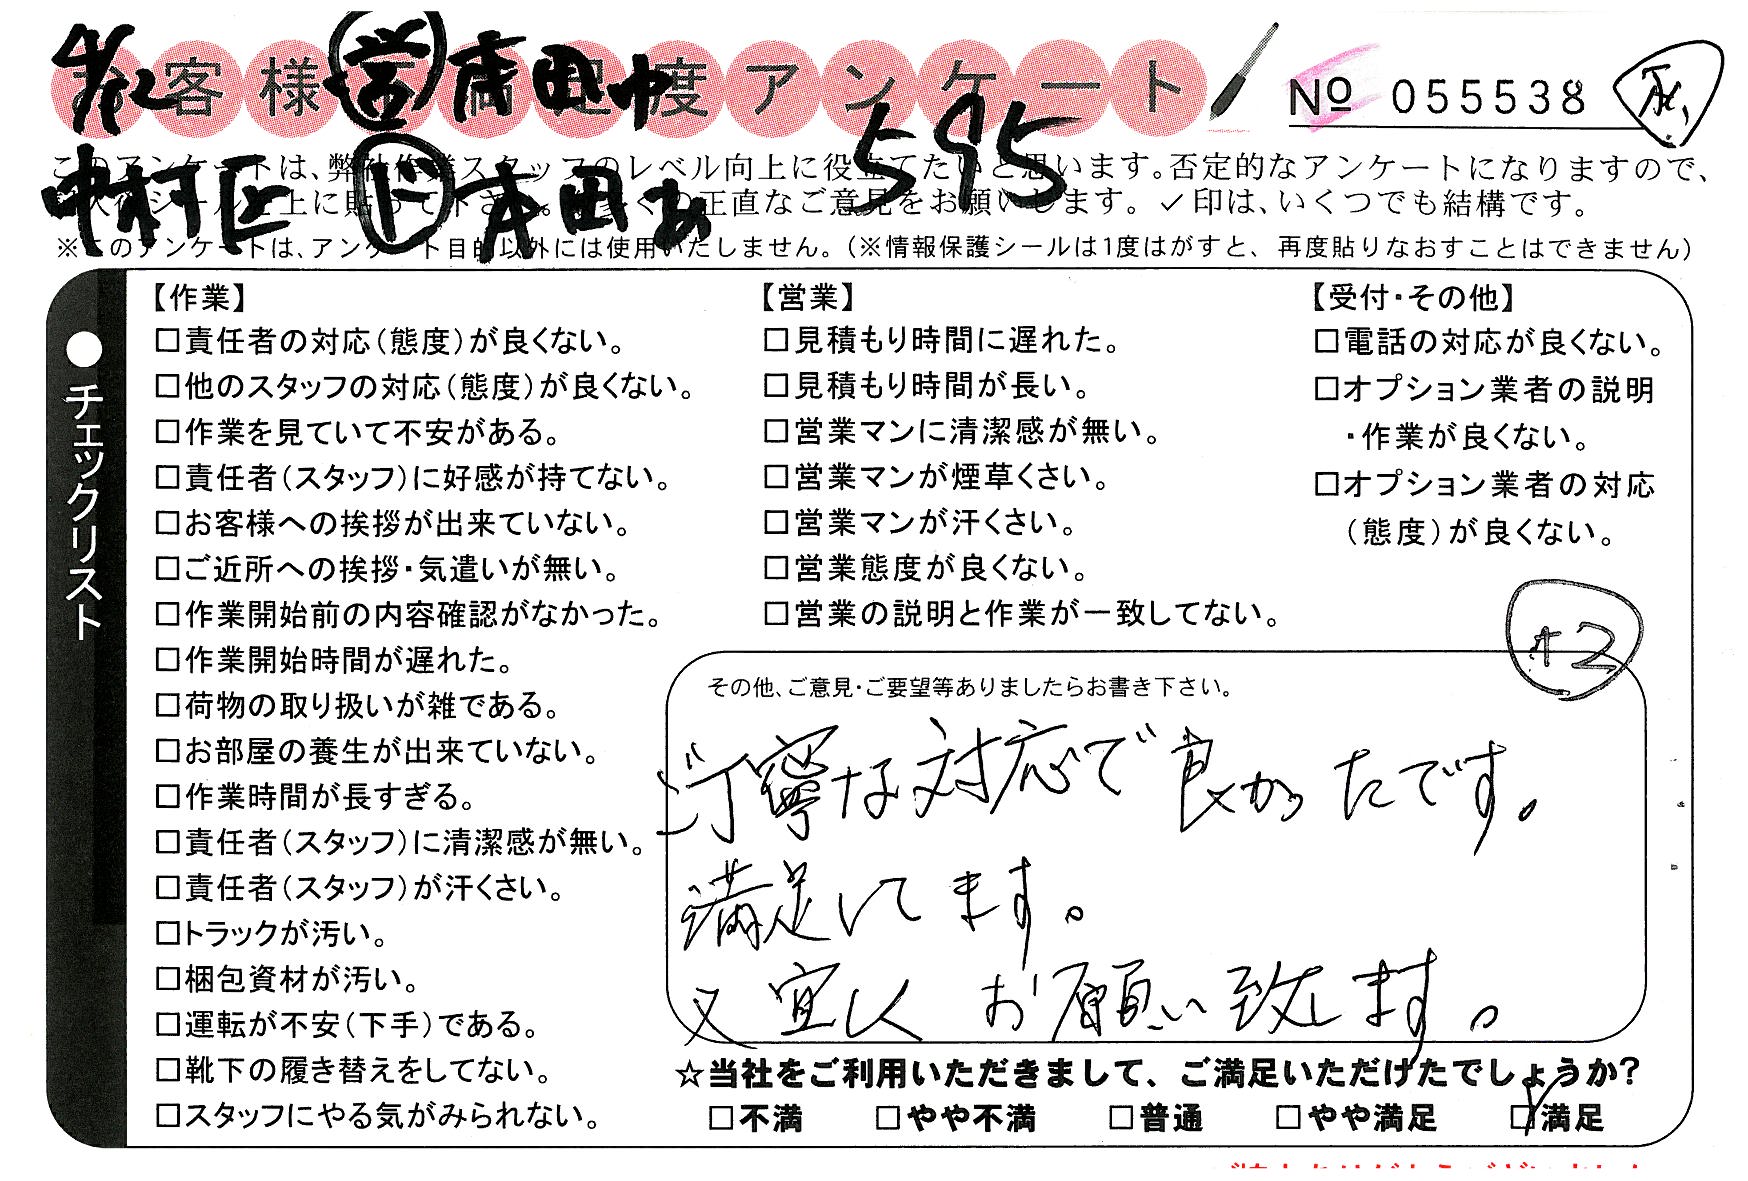 お客様満足度アンケート
№ 055538
4/2 営 本田ゆ 595
中村区 ド 本田あ
このアンケートは、弊社作業スタッフのレベル向上に役立てたいと思います。否定的なアンケートになりますので、
上に貼って下さい。多くの正直なご意見をお願いします。✓印は、いくつでも結構です。
※このアンケートは、アンケート目的以外には使用いたしません。(※情報保護シールは1度はがすと、再度貼りなおすことはできません)
●チェックリスト
【作業】
□責任者の対応(態度)が良くない。
□他のスタッフの対応(態度)が良くない。
□作業を見ていて不安がある。
□責任者(スタッフ)に好感が持てない。
□お客様への挨拶が出来ていない。
□ご近所への挨拶・気遣いが無い。
□作業開始前の内容確認がなかった。
□作業開始時間が遅れた。
□荷物の取り扱いが雑である。
□お部屋の養生が出来ていない。
□作業時間が長すぎる。
□責任者(スタッフ)に清潔感が無い。
□責任者(スタッフ)が汗くさい。
□トラックが汚い。
□梱包資材が汚い。
□運転が不安(下手)である。
□靴下の履き替えをしてない。
□スタッフにやる気がみられない。
【営業】
□見積もり時間に遅れた。
□見積もり時間が長い。
□営業マンに清潔感が無い。
□営業マンが煙草くさい。
□営業マンが汗くさい。
□営業態度が良くない。
□営業の説明と作業が一致してない。
【受付・その他】
□電話の対応が良くない。
□オプション業者の説明
・作業が良くない。
□オプション業者の対応
(態度)が良くない。
+2
その他、ご意見・ご要望等ありましたらお書き下さい。
ご丁寧な対応で良かったです。
満足してます。
又宜しくお願い致します。
☆当社をご利用いただきまして、ご満足いただけたでしょうか?
□不満 □やや不満 □普通 □やや満足 ☑満足